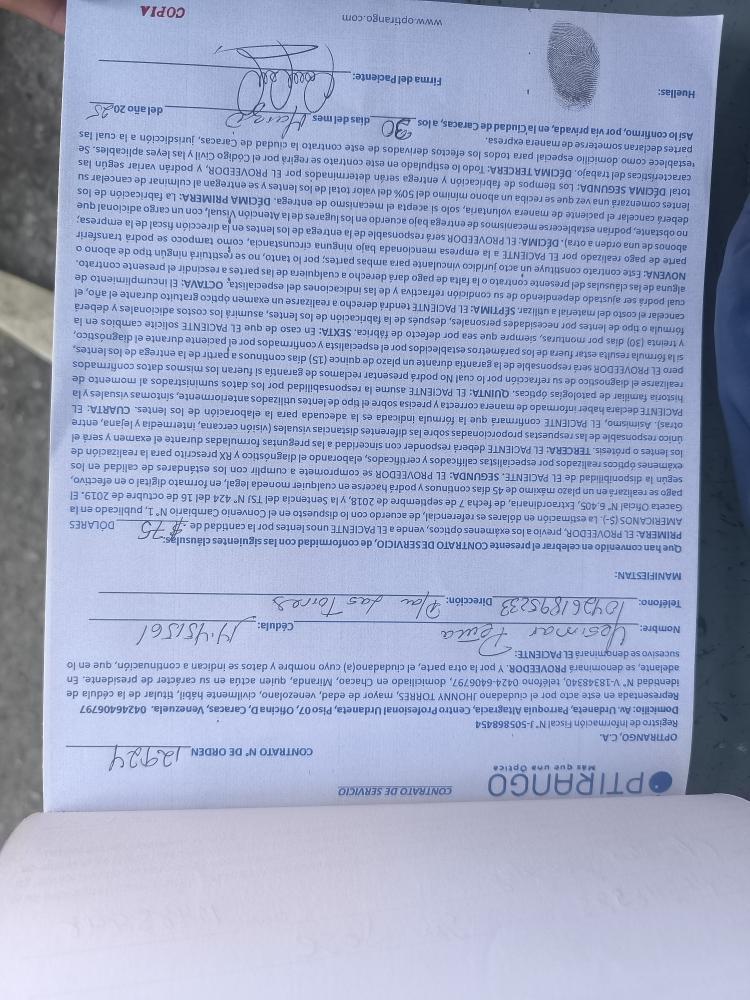 OPTIRANGO
Más que una Óptica
CONTRATO DE SERVICIO
CONTRATO N° DE ORDEN 12924
OPTIRANGO, C.A.
Registro de Información Fiscal N° J-505868454
Domicilio: Av. Urdaneta, Parroquia Altagracia, Centro Profesional Urdaneta, Piso 07, Oficina D, Caracas, Venezuela. 04246406797
Representada en este acto por el ciudadano JHONNY TORRES, mayor de edad, venezolano, civilmente hábil, titular de la cédula de
identidad N° V-18348340, teléfono 0424-6406797, domiciliado en Chacao, Miranda, quien actúa en su carácter de presidente. En
adelante, se denominará PROVEEDOR. Y por la otra parte, el ciudadano(a) cuyo nombre y datos se indica a continuación, que en lo
sucesivo se denominará EL PACIENTE:
Nombre: Yesimar Peña Cédula: 17.451.561
Teléfono: 04261895233 Dirección: Plan Las Torres
MANIFIESTAN:
Que han convenido en celebrar el presente CONTRATO DE SERVICIO, de conformidad con las siguientes cláusulas:
PRIMERA: EL PROVEEDOR, previo a los exámenes ópticos, vende a EL PACIENTE unos lentes por la cantidad de $ 75 DÓLARES
AMERICANOS ($). La estimación en dólares es referencial, de acuerdo con lo dispuesto en el Convenio Cambiario N° 1, publicado en la
Gaceta Oficial N° 6.405, Extraordinaria, de fecha 7 de septiembre de 2018, y la Sentencia del TSJ N° 424 del 16 de octubre de 2019. El
pago se realizará en un plazo máximo de 45 días continuos y podrá hacerse en cualquier moneda legal, en formato digital o en efectivo,
según la disponibilidad de EL PACIENTE. SEGUNDA: EL PROVEEDOR se compromete a cumplir con los estándares de calidad en los
exámenes ópticos realizados por especialistas calificados y certificados, elaborando el diagnóstico y RX prescrito para la realización de
los lentes o prótesis. TERCERA: EL PACIENTE deberá responder con sinceridad a las preguntas formuladas durante el examen y será el
único responsable de las respuestas proporcionadas sobre las diferentes distancias visuales (visión cercana, intermedia y lejana, entre
otras). Asimismo, EL PACIENTE confirmará que la fórmula indicada es la adecuada para la elaboración de los lentes. CUARTA: EL
PACIENTE declara haber informado de manera correcta y precisa sobre el tipo de lentes utilizados anteriormente, síntomas visuales y la
historia familiar de patologías ópticas. QUINTA: EL PACIENTE asume la responsabilidad por los datos suministrados al momento de
realizarse el diagnostico de su refracción por lo cual No podrá presentar reclamos de garantía si fueran los mismos datos confirmados
pero EL PROVEEDOR será responsable de la garantía durante un plazo de quince (15) días continuos a partir de la entrega de los lentes,
si la fórmula resulta estar fuera de los parámetros establecidos por el especialista y confirmados por el paciente durante el diagnóstico,
y treinta (30) días por monturas, siempre que sea por defecto de fábrica. SEXTA: En caso de que EL PACIENTE solicite cambios en la
fórmula o tipo de lentes por necesidades personales, después de la fabricación de los lentes, asumirá los costos adicionales y deberá
cancelar el costo del material a utilizar. SÉPTIMA: EL PACIENTE tendrá derecho a realizarse un examen óptico gratuito durante el año, el
cual podrá ser ajustado dependiendo de su condición refractiva y de las indicaciones del especialista. OCTAVA: El incumplimiento de
alguna de las cláusulas del presente contrato o la falta de pago dará derecho a cualquiera de las partes a rescindir el presente contrato.
NOVENA: Este contrato constituye un acto jurídico vinculante para ambas partes; por lo tanto, no se restituirá ningún tipo de abono o
parte de pago realizado por EL PACIENTE a la empresa mencionada bajo ninguna circunstancia, como tampoco se podrá transferir
abonos de una orden a otra). DÉCIMA: EL PROVEEDOR será responsable de la entrega de los lentes en la dirección fiscal de la empresa;
no obstante, podrán establecerse mecanismos de entrega bajo acuerdo en los lugares de la Atención Visual, con un cargo adicional que
deberá cancelar el paciente de manera voluntaria, solo si acepta el mecanismo de entrega. DÉCIMA PRIMERA: La fabricación de los
lentes comenzará una vez que se recibe un abono mínimo del 50% del valor total de los lentes y se entregan al culminar de cancelar su
total DÉCIMA SEGUNDA: Los tiempos de fabricación y entrega serán determinados por EL PROVEEDOR, y podrán variar según las
características del trabajo. DÉCIMA TERCERA: Todo lo estipulado en este contrato se regirá por el Código Civil y las leyes aplicables. Se
establece como domicilio especial para todos los efectos derivados de este contrato la ciudad de Caracas, jurisdicción a la cual las
partes declaran someterse de manera expresa.
Así lo confirmo, por vía privada, en la Ciudad de Caracas, a los 30 días del mes Marzo del año 2025
Huellas:
Firma del Paciente:
www.optirango.com
COPIA